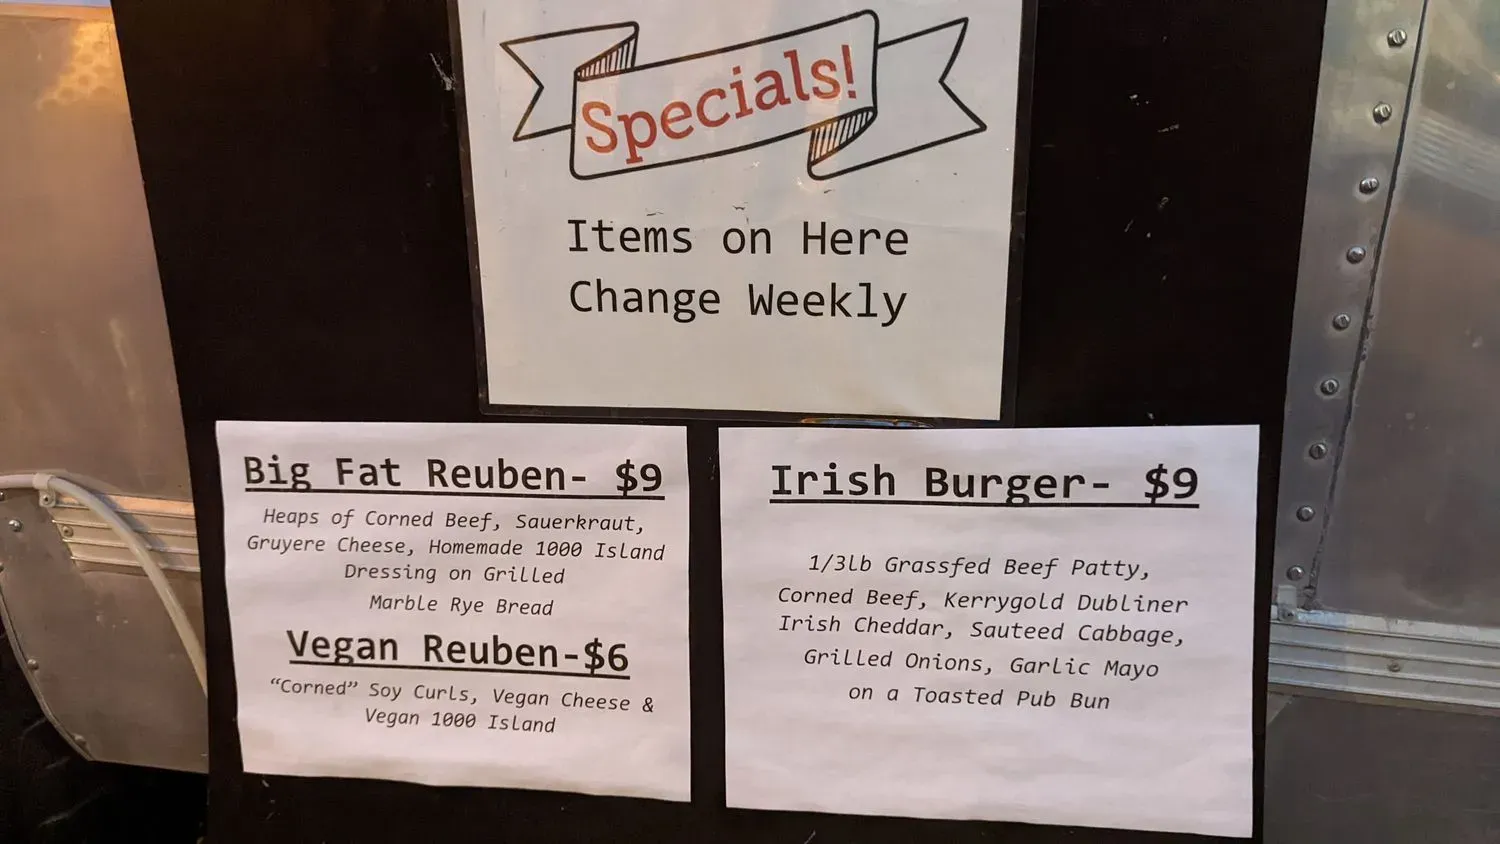 Specials!
Items on Here
Change Weekly
Big Fat Reuben- $9
Heaps of Corned Beef, Sauerkraut,
Gruyere Cheese, Homemade 1000 Island
Dressing on Grilled
Marble Rye Bread
Vegan Reuben-$6
“Corned” Soy Curls, Vegan Cheese &
Vegan 1000 Island
Irish Burger- $9
1/3lb Grassfed Beef Patty,
Corned Beef, Kerrygold Dubliner
Irish Cheddar, Sauteed Cabbage,
Grilled Onions, Garlic Mayo
on a Toasted Pub Bun